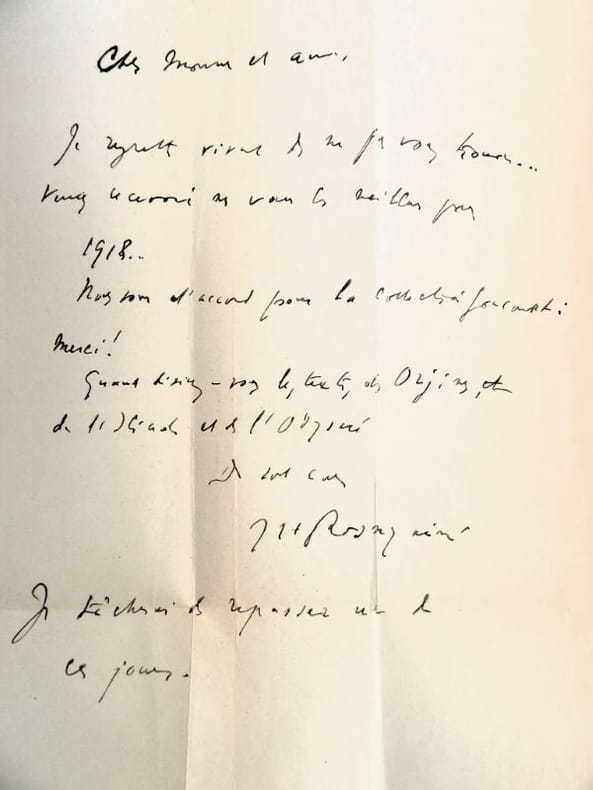 Cher Monsieur et ami,
Je regrette vivement de ne pas vous trouver...
Veuillez recevoir mes vœux les meilleurs pour
1918..
Nous sommes d'accord pour la collection Goncourt :
Merci !
Quand désirez-vous les textes des Origines, et
de l'Iliade et de l'Odyssée
De tout cœur
J H Rosny aîné
Je tâcherai de repasser un de
ces jours.